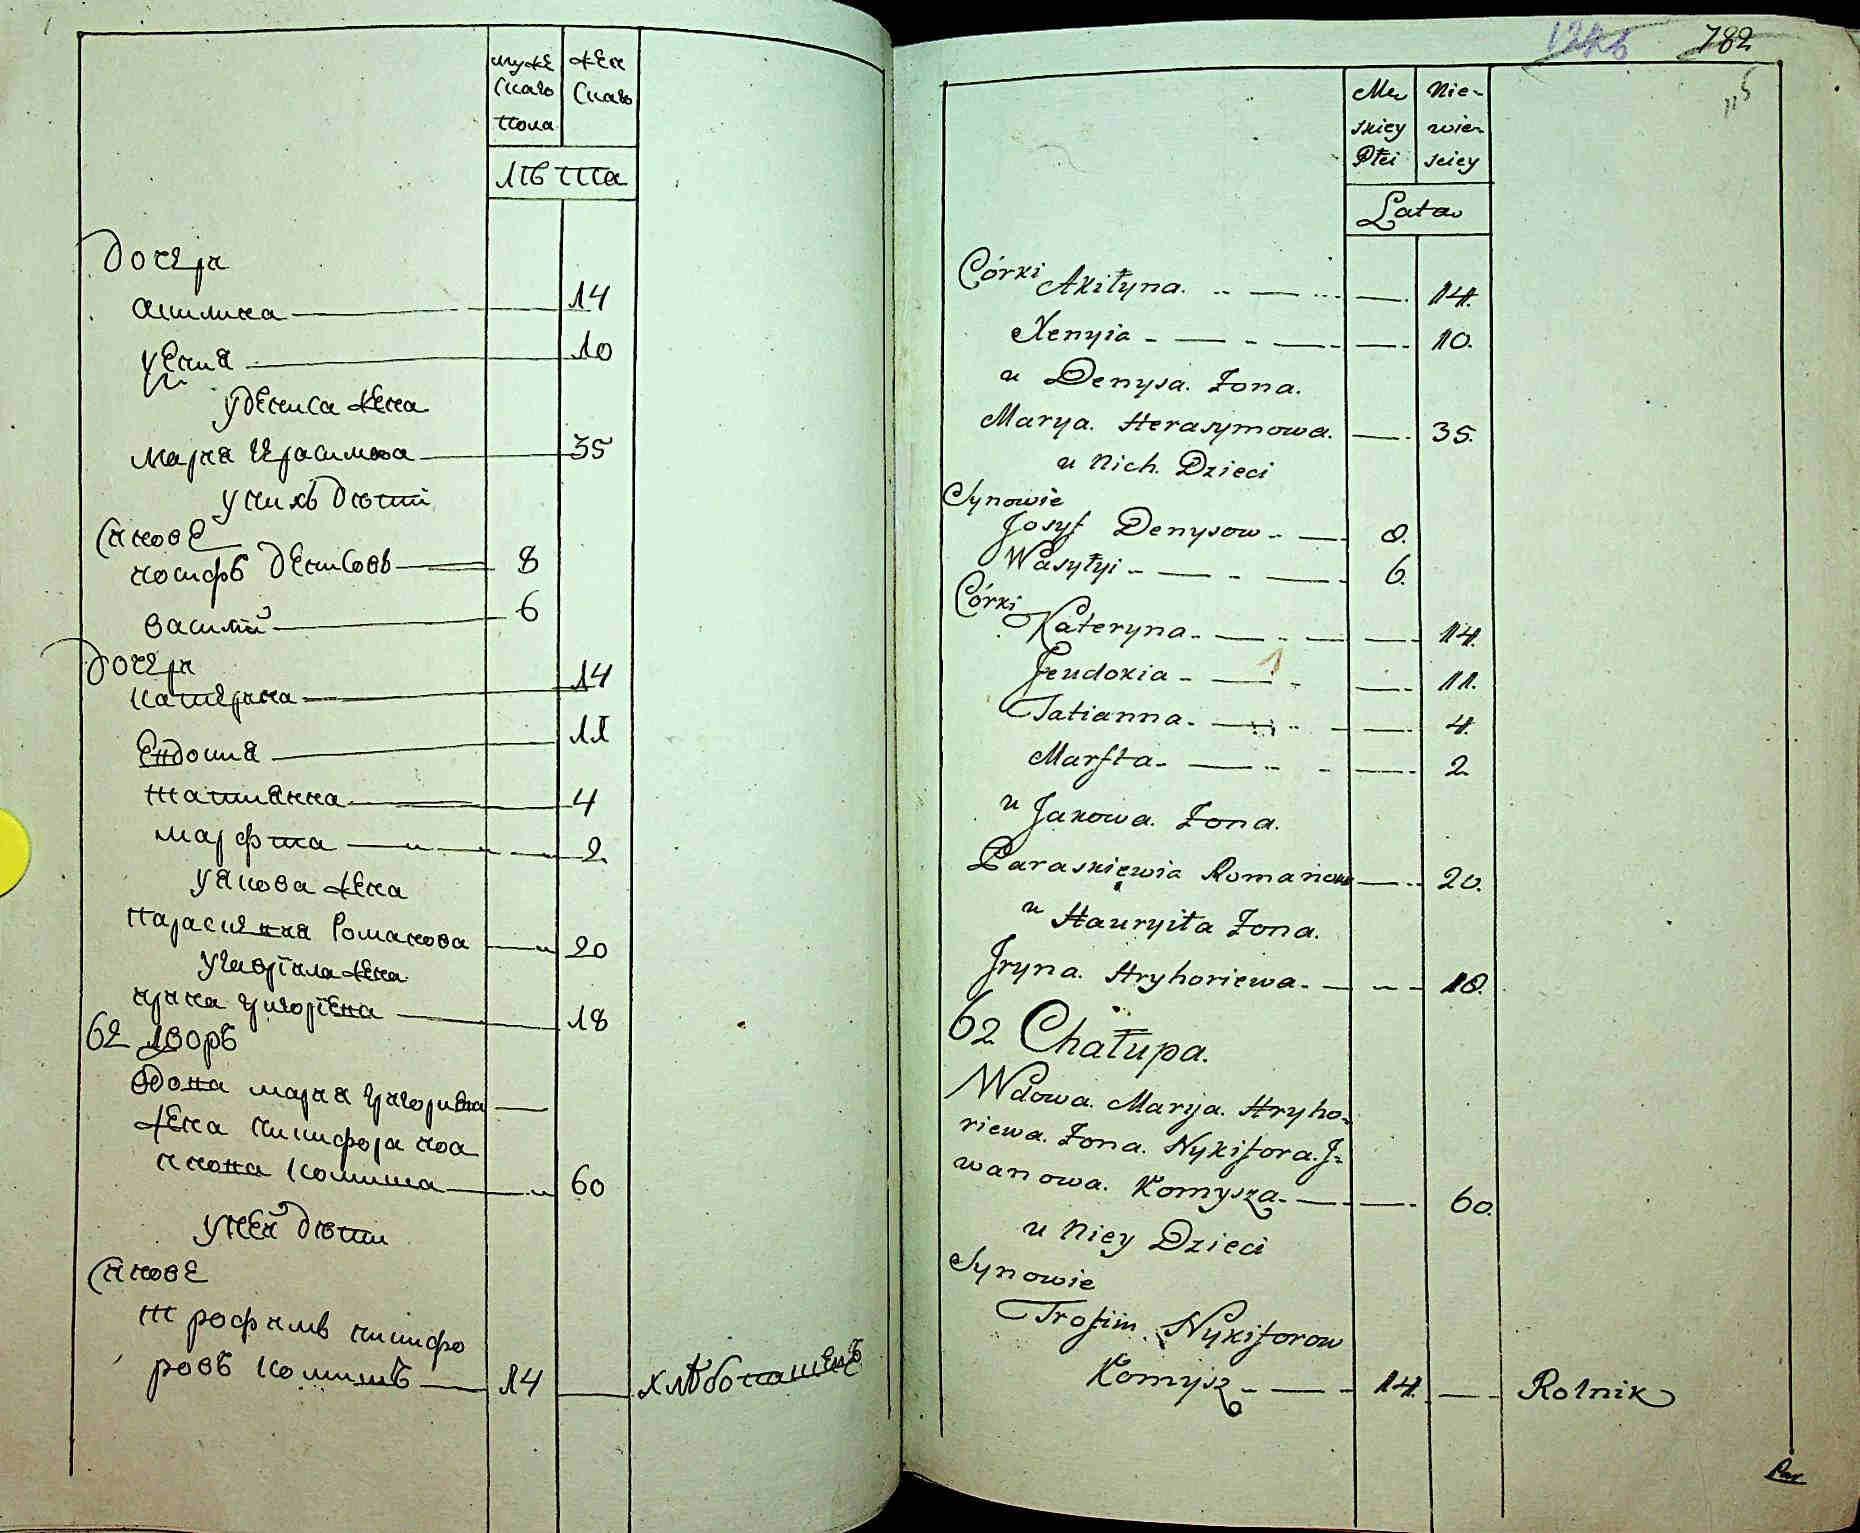 муже
скаго
пола
жен
скаго
лѣта
дочери
акилина 14
ксения 10
у дениса жена
мария герасимова 35
у нихъ дѣти
синове
иосифъ денисовъ 8
василий 6
дочери
катерина 14
евдокия 11
татиянна 4
марфта 2
у якова жена
параскевия Романова 20
у гавріила жена
ирина григоріева 18
62 дворъ
вдова мария григориева
жена никифора ива
нова комиша 60
у ней дѣти
синове
трофимъ никифо
ровъ комишъ 14 хлѣбопашецъ
1246 782
115
Mę
skiey
Płci
Nie-
wie-
sciey
Lata
Córki Akiłyna. 14.
Xenyia 10.
u Denysa. Żona.
Marya. Herasymowa. 35.
u Nich. Dzieci
Synowie
Josyf Denysow 8.
Wasyłyi 6.
Córki
Kateryna 14.
Jeudokia 11.
Tatianna 4.
Marfta 2
u Jakowa. Żona.
Paraskiewia Romanowa 20.
u Hauryiła Żona.
Iryna. Hryhoriewa. 18.
62 Chałupa.
Wdowa. Marya. Hryho-
riewa. Żona. Nykifora. I-
wanowa. Komysza 60.
u Niey Dzieci
Synowie
Trofim Nykiforow
Komysz 14. Rolnik